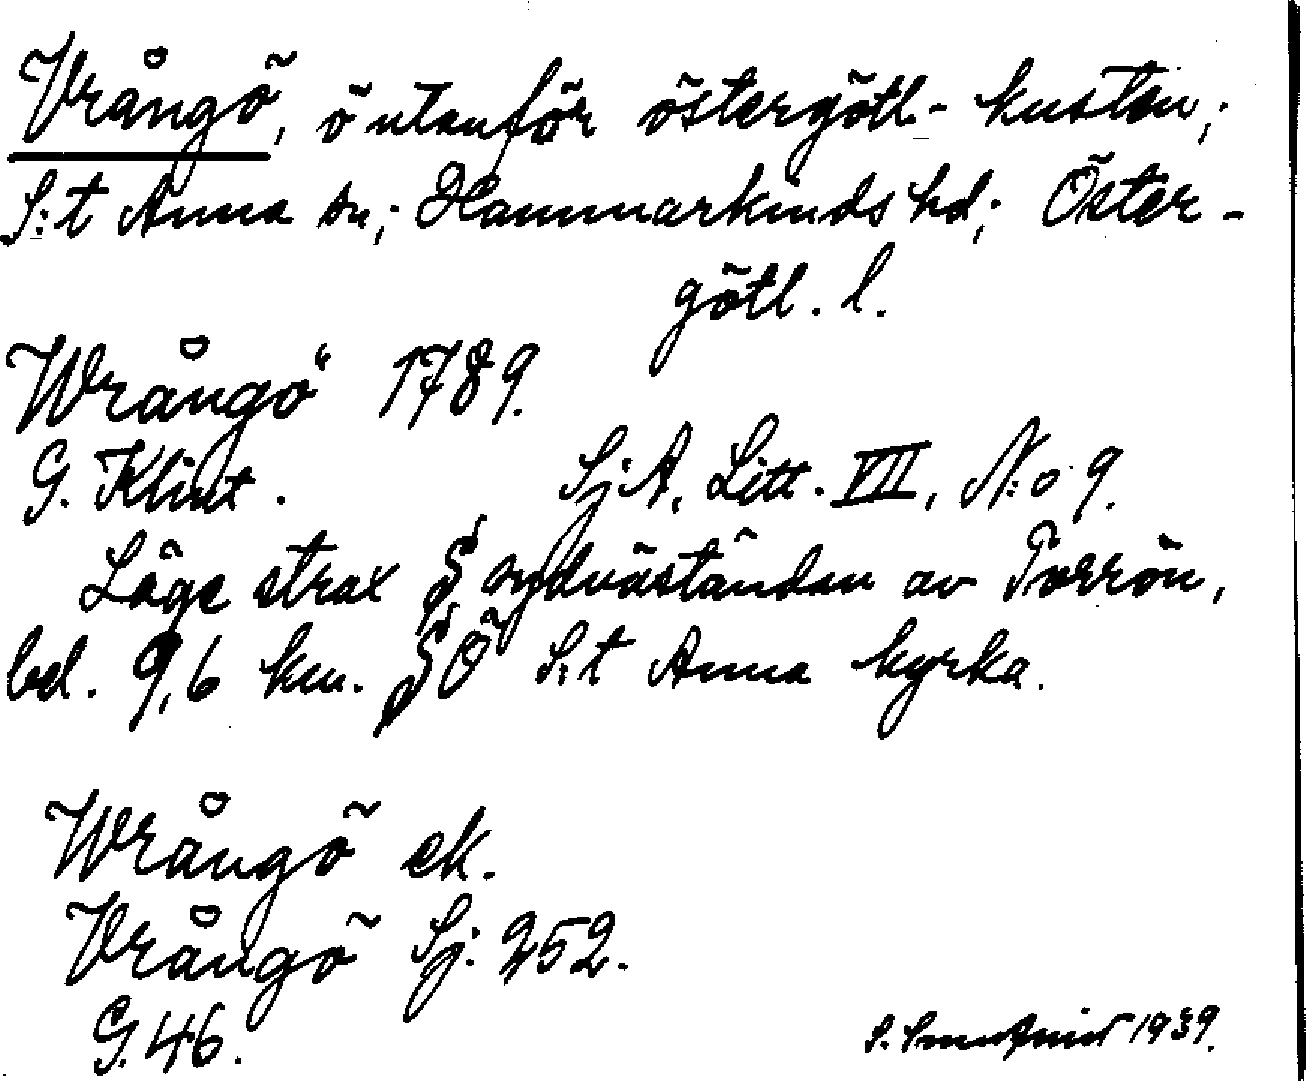 Vrångö, ö utanför östergötl.- kusten;
S:t Anna sn; Hammarkinds hd; Öster-
götl. l.
Wrångö 1789.
G. Klint. Sj.A. Litt. VII, N:o 9.
Läge strax S sydväständan av Torrön,
bel. 9,6 km. SÖ S:t Anna kyrka.
Wrångö ek.
Vrångö Sj. 252.
G. 46.
S. 1939.